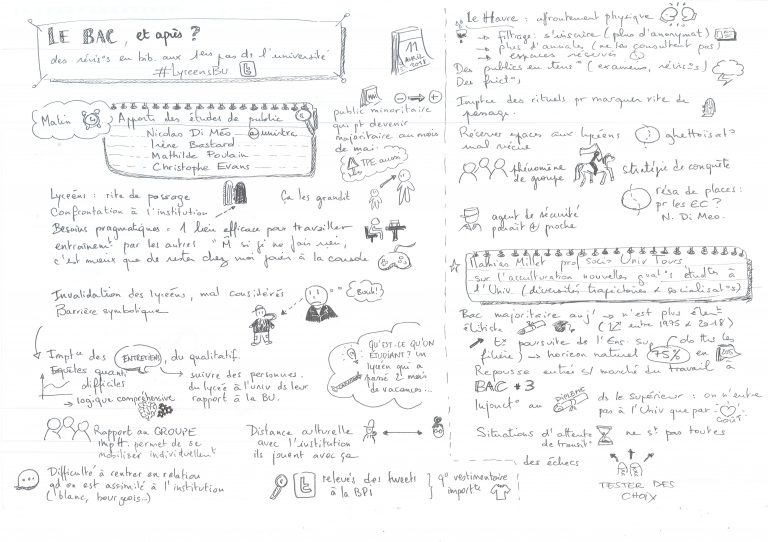 LE BAC, et après ?
des révis°s en bib. aux 1ers pas de l'université
#LyceensBU
11
AVRIL
2018
Matin
Apports des études de public
Nicolas Di Méo
Irène Bastard
Mathilde Poulain
Christophe Evans
public minoritaire
qui pt devenir
majoritaire au mois
de mai.
TPE aussi
Lycéens : rite de passage
Confrontation à l'institution
Ça les grandit
Besoins pragmatiques = 1 lieu efficace pour travailler
entraînemt par les autres "M̂ si je ne fais rien,
c'est mieux que de rester chez moi jouer à la console
Invalidation des lycéens, mal considérés
Barrière symbolique
Bouh!
Impt° des ENTRETIENS, du qualitatif.
Enquêtes quanti
difficiles
logique compréhensive
suivre des personnes.
du lycée à l'univ ds leur
rapport à la BU.
QU'EST-CE QU'UN
ÉTUDIANT ? UN
LYCÉEN QUI A
PASSÉ 2 MOIS
DE VACANCES...
Rapport au GROUPE
imptt. permet de se
mobiliser individuellemt
Distance culturelle
avec l'institution
ils jouent avec ça
Difficulté à rentrer en relation
qd on est assimilé à l'institution
(blanc, bourgeois...)
relevés des tweets
à la BPI
q° vestimentaire
importte
Le Havre : affrontement physique
→ filtrage : s'inscrire (plus d'anonymat)
→ plus d'annales (ne les consultent pas)
→ espaces réservés
Des publics en tens° (examens, révis°s)
Des frict°s
Imptce des rituels pr marquer rite de
passage.
Réserver espaces aux lycéens
mal vécue
ghettoisat°
phénomène
de groupe
stratégie de conquête
agent de sécurité
paraît + proche
résa de places :
pr les EC ?
N. Di Meo.
Mathias Millet prof socio Univ Tours
sur l'acculturation nouvelles générat°s étudtes à
l'Univ (diversités trajectoires & socialisat°s)
Bac majoritaire auj' → n'est plus élémt
élitiste
entre 1975 & 2018)
poursuite de l'Ens. Sup
filière) → horizon naturel 75% en 2015
Repousse entrée s/ marché du travail à
BAC + 3
Injonct° au DIPLÔME ds le Supérieur : on n'entre
pas à l'Univ que par GOÛT
Situations d'attente
de transit°
ne st pas toutes
des échecs
TESTER DES
CHOIX